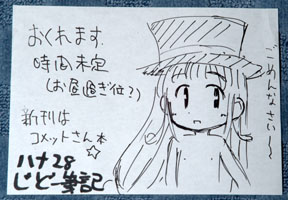 おくれます。
時間未定
(お昼過ぎ位?)
新刊は
コメットさん本
☆
ハナ28
じどー筆記
ごめんなさい〜